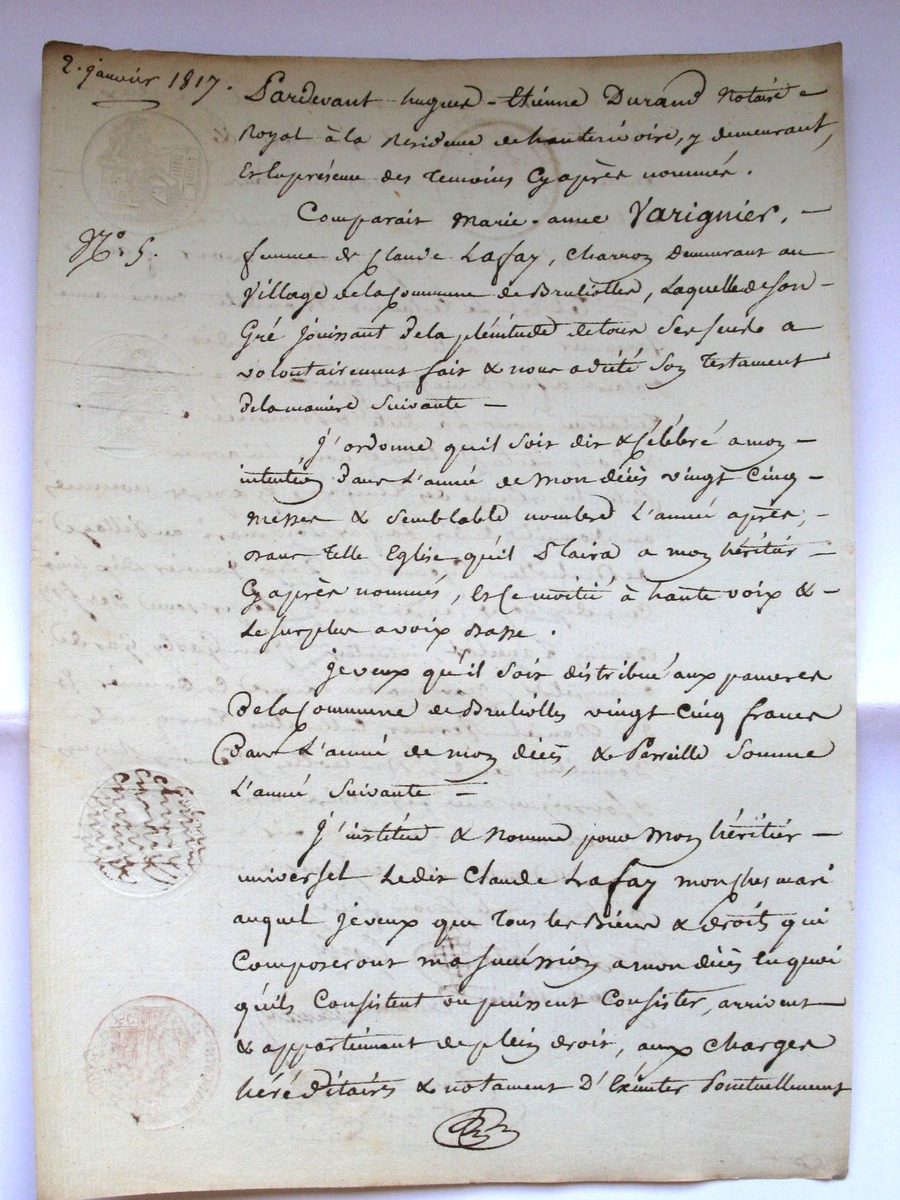 2. janvier 1817.
Pardevant hugues-Etienne Durand Notaire
Royal à la Residence de hauterivoire, y demeurant,
En la présence des Temoins Cyaprès nommés.
Comparait Marie-anne Varignier,
N.º 5.
femme de Claude Lafay, Charron Demeurant au
Village de la Commune de Brulliolles, Laquelle de son
Gré jouissant de la plénitude de tous Ses Sens a
volontairement fait & nous a dicté Son Testament
de la maniere Suivante —
J'ordonne qu'il Soit dit & Célébré a mon
intention Dans L'année de Mon décès vingt Cinq
Messes & Semblable nombre L'année après,
Dans Telle Eglise qu'il Plaira a mon héritier
Cyaprès nommés, Et Ce moitié à haute voix &
Le surplus a voix Basse.
Je veux qu'il Soit distribué aux pauvres
De la Commune de Brulliolles vingt Cinq francs
Dans L'année de mon décès, & Parreille Somme
L'année Suivante —
J'institue & Nomme pour Mon héritier
universel Ledit Claude Lafay mon cher mari
auquel je veux que Tous les Biens & droits qui
Composeront ma Succession a mon décès En quoi
qu'ils Consistent ou puissent Consister, arrivent
& appartiennent de plein droit, aux Charges
héréditaires & notament D'Exécuter Ponctuellement